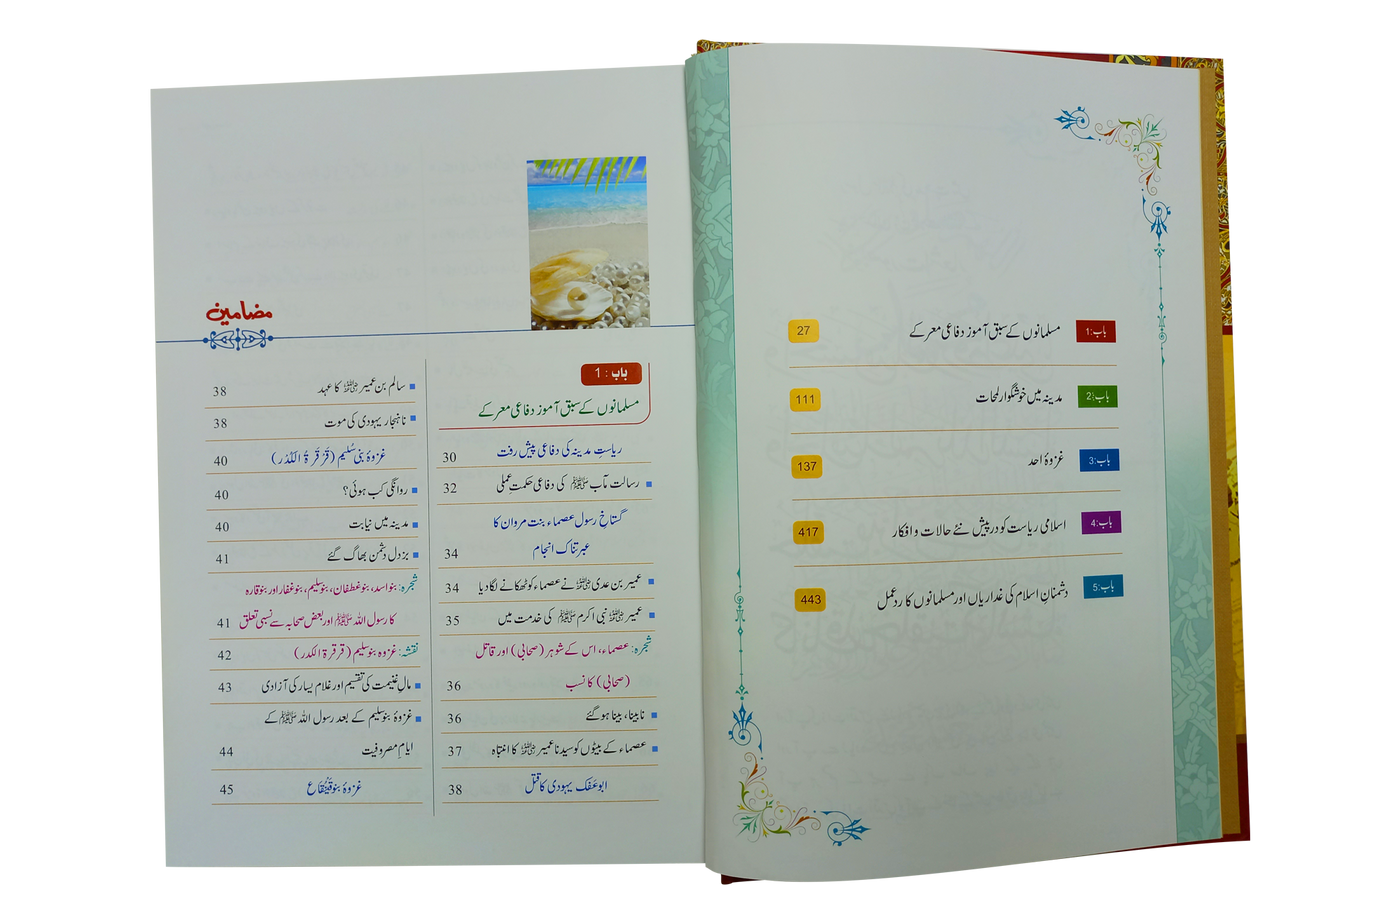 باب:1 مسلمانوں کے سبق آموز دفاعی معرکے 27
باب:2 مدینہ میں خوشگوار لمحات 111
باب:3 غزوۂ احد 137
باب:4 اسلامی ریاست کو درپیش نئے حالات و افکار 417
باب:5 دشمنانِ اسلام کی غداریاں اور مسلمانوں کا ردعمل 443
مضامین
باب : 1
مسلمانوں کے سبق آموز دفاعی معرکے
ریاستِ مدینہ کی دفاعی پیش رفت 30
رسالت مآب ﷺ کی دفاعی حکمتِ عملی 32
گستاخِ رسول عصماء بنت مروان کا
عبرتناک انجام 34
عمیر بن عدی ؓ نے عصماء کو ٹھکانے لگا دیا 34
عمیر ؓ نبی اکرم ﷺ کی خدمت میں 35
شجرہ: عصماء، اس کے شوہر (صحابی) اور قاتل
(صحابی) کا نسب 36
نابینا، بینا ہو گئے 36
عصماء کے بیٹوں کو سیدنا عمیر ؓ کا انتباہ 37
ابو عَفَک یہودی کا قتل 38
سالم بن عمیر ؓ کا عہد 38
ناہنجار یہودی کی موت 38
غزوۂ بنی سُلیم (قَرْقَرۃُ الْکُدْر) 40
روانگی کب ہوئی؟ 40
مدینہ میں نیابت 40
بزدل دشمن بھاگ گئے 41
شجرہ: بنو اسد، بنو غطفان، بنو سلیم، بنو غفار اور بنو قارہ
کا رسول اللہ ﷺ اور بعض صحابہ سے نسبی تعلق 41
نقشہ: غزوہ بنو سلیم (قرقرۃ الکدر) 42
مالِ غنیمت کی تقسیم اور غلام یسار کی آزادی 43
غزوۂ بنو سلیم کے بعد رسول اللہ ﷺ کے
ایامِ مصروفیت 44
غزوۂ بنو قَیْنُقَاع 45